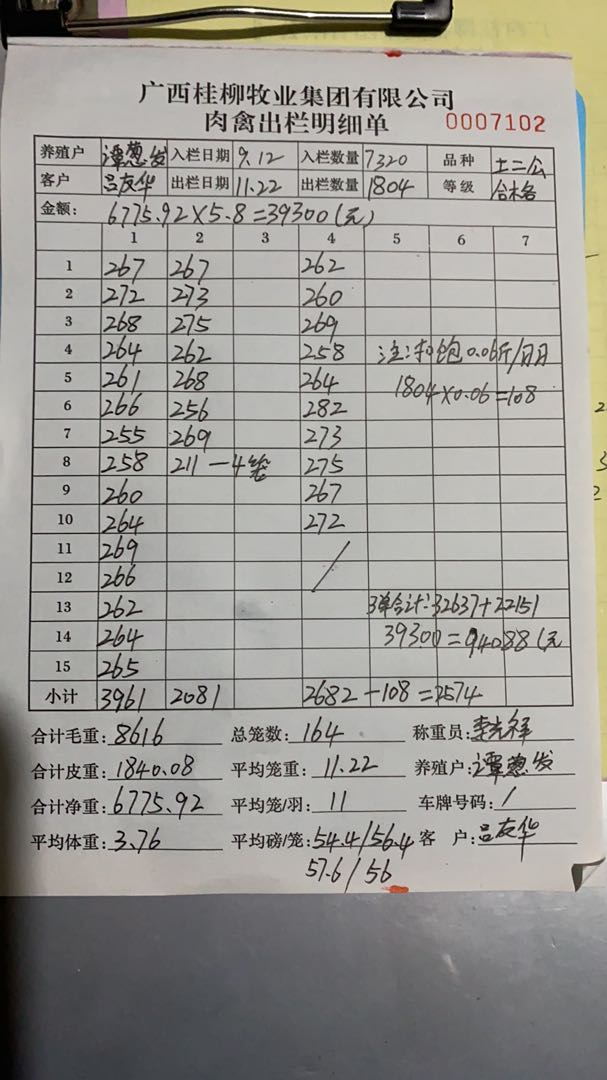 广西桂柳牧业集团有限公司
肉禽出栏明细单 0007102
养殖户 谭葱发 入栏日期 9.12 入栏数量 7320 品种 土二公
客户 吕友华 出栏日期 11.22 出栏数量 1804 等级 合格
金额: 6775.92×5.8=39300(元)
1 2 3 4 5 6 7
1 267 267 262
2 272 273 260
3 268 275 269
4 264 262 258 注:料饱0.06斤/
5 261 268 264 1804×0.06=108
6 266 256 282
7 255 269 273
8 258 211 —4笼 275
9 260 267
10 264 272
11 269 /
12 266
13 262 3单合计:32637+22151
14 264 39300=94088(元
15 265
小计 3961 2081 2682 -108=2574
合计毛重: 8616 总笼数: 164 称重员: 李光祥
合计皮重: 1840.08 平均笼重: 11.22 养殖户: 谭葱发
合计净重: 6775.92 平均笼/羽: 11 车牌号码: /
平均体重: 3.76 平均磅/笼: 54.4/56.4 客 户: 吕友华
57.6/56